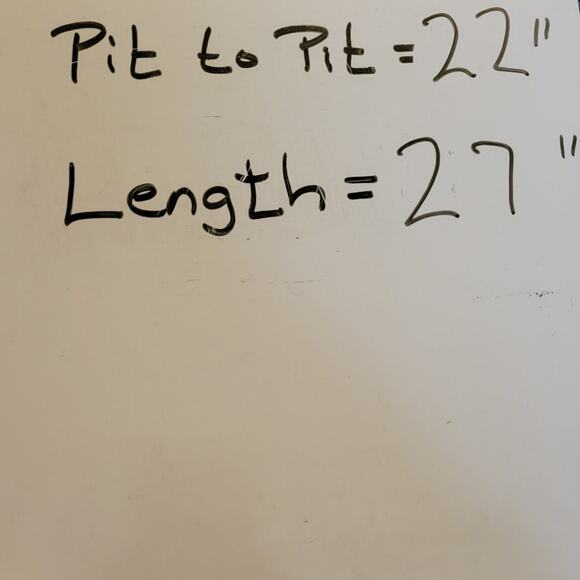 Pit to Pit = 22"
Length = 27"